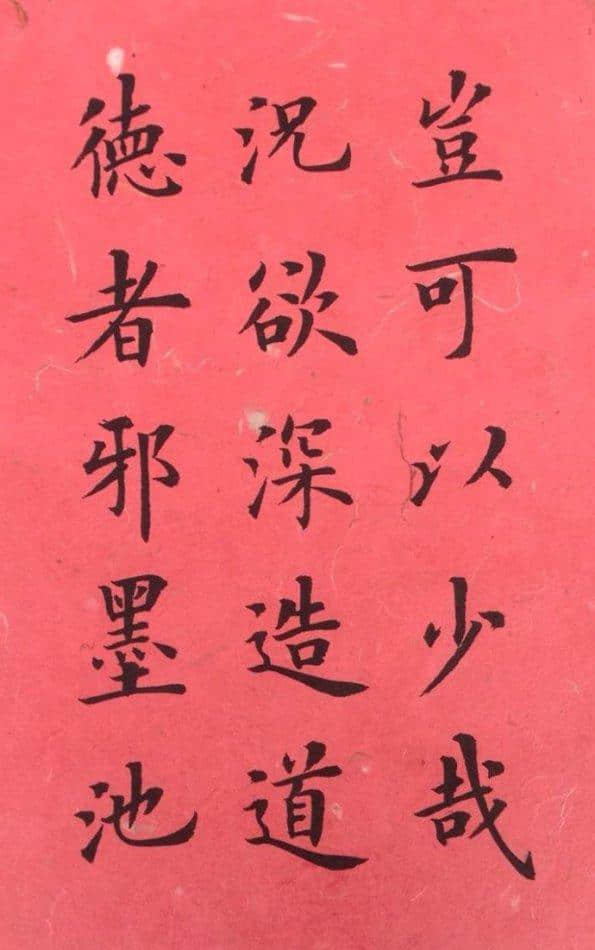 豈可以少哉
況欲深造道
徳者邪墨池